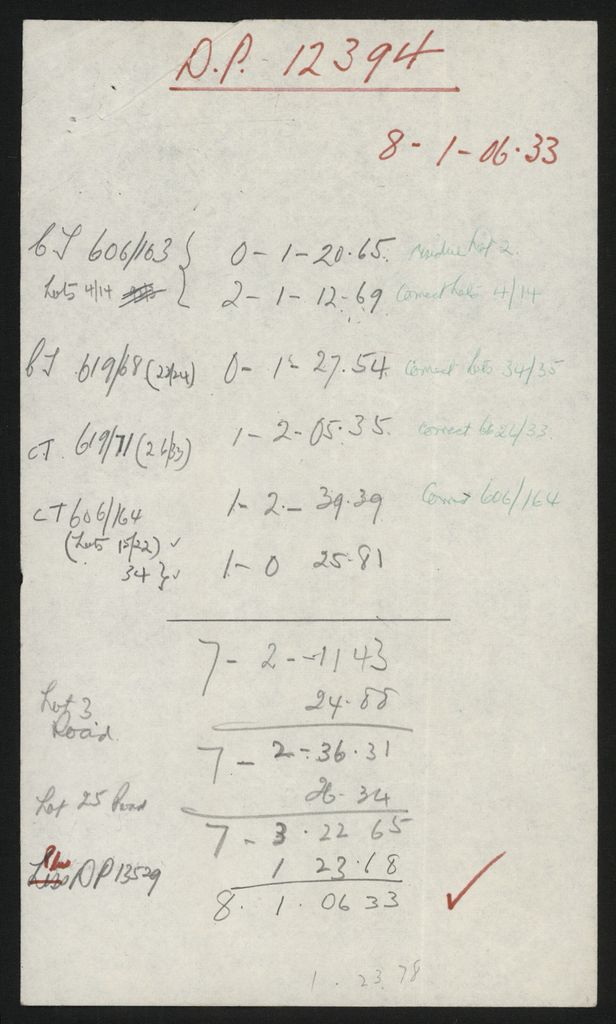 D.P. 12394
8 - 1 - 06.33
CT 606/163 } 0 - 1 - 20.65. residue Lot 2.
Lots 4/14 2 - 1 - 12.69 Correct Lots 4/14
CT 619/68 (22/24) 0 - 1 - 27.54 Correct Lots 34/35
CT 619/71 (26/33) 1 - 2 - 05.35. correct 26/33
CT 606/164 1 - 2 - 39.39 Correct 606/164
(Lots 15/22) ✓
34 } ✓ 1 - 0 25.81
7 - 2 - 11 43
Lot 3 24.88
Road
7 - 2 - 36.31
Lot 25 Road 26.34
7 - 3 . 22 65
Plus DP 13529 1 23.68
8. 1. 06 33 ✓
1 . 23.78